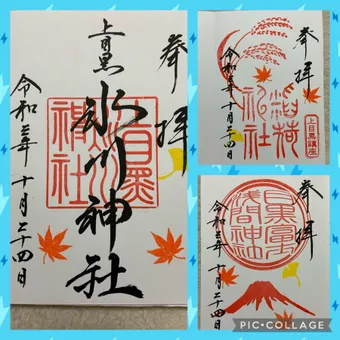 奉拝
上目黒
氷川神社
令和三年 十月二十四日
奉拝
稲荷神社
上目黒鎮座
令和三年十月二十四日
奉拝
目黒富士
浅間神社
令和三年十月二十四日
PIC•COLLAGE